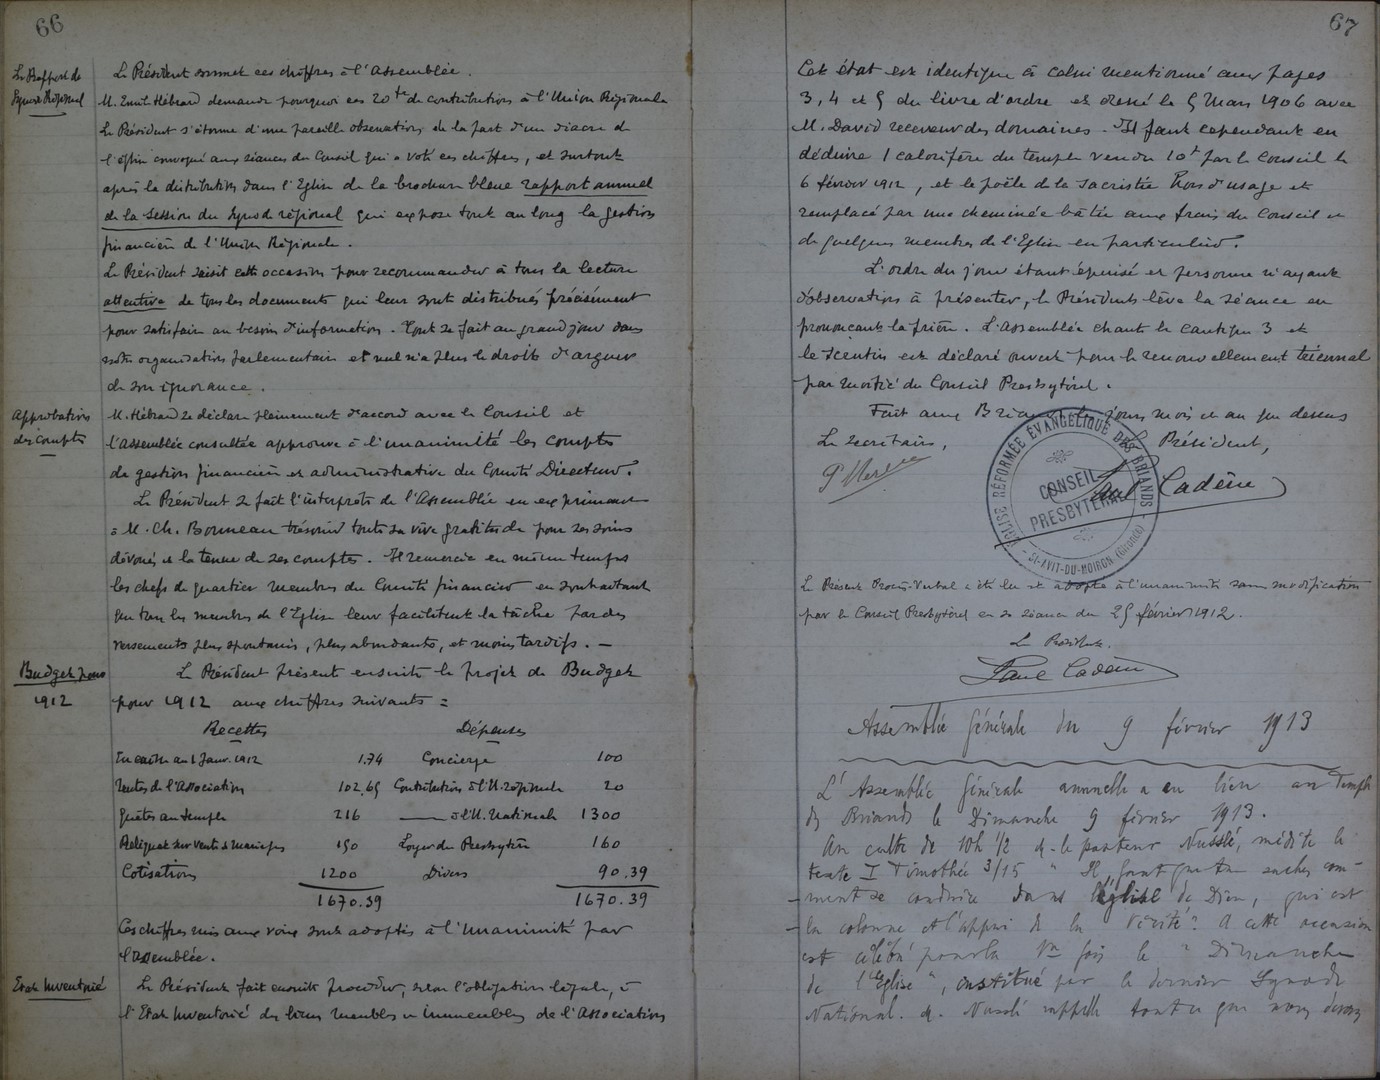 66
Le Rapport de
Synode Régional
Le Président soumet ces chiffres à l'Assemblée.
M. Emile Hébrard demande pourquoi ces 20 fr de contribution à l'Union Régionale
Le Président s'étonne d'une pareille observation de la part d'un diacre de
l'église convoqué aux séances du Conseil qui a voté ces chiffres, et surtout
après la distribution dans l'Eglise de la brochure bleue rapport annuel
de la session du Synode régional qui expose tout au long la gestion
financière de l'Union Régionale.
Le Président saisit cette occasion pour recommander à tous la lecture
attentive de tous les documents qui leur sont distribués précisément
pour satisfaire au besoin d'information. Tout se fait au grand jour dans
notre organisation parlementaire et nul n'a plus le droit d'arguer
de son ignorance.
Approbation
des comptes
M. Hébrard se déclare pleinement d'accord avec le Conseil et
l'assemblée consultée approuve à l'unanimité les comptes
de gestion financière et administrative du Comité Directeur.
Le Président se fait l'interprète de l'Assemblée en exprimant
à M. Ch. Bonneau trésorier toute sa vive gratitude pour ses soins
dévoués et la tenue de ses comptes. Il remercie en même temps
les chefs de quartier membres du Comité financier en souhaitant
que tous les membres de l'Eglise leur facilitent la tâche par des
versements plus spontanés, plus abondants, et moins tardifs. —
Budget pour
1912
Le Président présente ensuite le projet de Budget
pour 1912 aux chiffres suivants =
Recettes Dépenses
En caisse au 1 Janv. 1912 1.74 Concierge 100
Rentes de l'Association 102,65 Contribution à l'U. régionale 20
Quêtes au temple 216 —— à l'U. Nationale 1300
Reliquat sur vente de 150 Loyer du Presbytère 160
Cotisations 1200 Divers 90.39
1670.39 1670.39
Ces chiffres mis aux voix sont adoptés à l'Unanimité par
l'assemblée.
Etat Inventorié
Le Président fait ensuite procéder, selon l'obligation légale, à
l'Etat Inventorié des biens meubles et immeubles de l'Association
67
Cet état est identique à celui mentionné aux pages
3, 4 et 5 du livre d'ordre et dressé le 5 Mars 1906 avec
M. David receveur des domaines. Il faut cependant en
déduire 1 calorifère du temple vendu 10 f par le Conseil le
6 février 1912, et le poêle de la sacristie hors d'usage et
remplacé par une cheminée bâtie aux frais du Conseil et
de quelques membres de l'Eglise en particulier.
L'ordre du jour étant épuisé et personne n'ayant
d'observation à présenter, le Président lève la séance en
prononçant la prière. L'Assemblée chante le cantique 3 et
le scrutin est déclaré ouvert pour le renouvellement triennal
par moitié du Conseil Presbytéral.
Fait aux Briands les jour mois et an que dessus
Le Secrétaire, Président,
Paul Cadène
EGLISE RÉFORMÉE ÉVANGÉLIQUE DES BRIANDS
CONSEIL
PRESBYTÉRAL
ST-AVIT-DU-MOIRON (Gironde)
Le Présent Procès-Verbal a été lu et adopté à l'unanimité sans modification
par le Conseil Presbytéral en sa séance du 25 février 1912.
Le Président.
Paul Cadène
Assemblée Générale du 9 février 1913
L'Assemblée Générale annuelle a eu lieu au Temple
des Briands le Dimanche 9 février 1913.
Au culte de 10h 1/2 M. le pasteur Nusslé, médite le
texte I Timothée 3/15 " Il faut que tu saches com-
-ment se conduire dans l'Eglise de Dieu, qui est
la colonne et l'appui de la Vérité". A cette occasion
est célébré pour la 1re fois le " Dimanche
de l'Eglise ", institué par le dernier Synode
National. M. Nusslé rappelle tout ce que nous devons